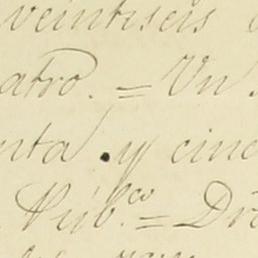 veintiseis
atro. = Un
nta y cinc
Púb.co = Dro